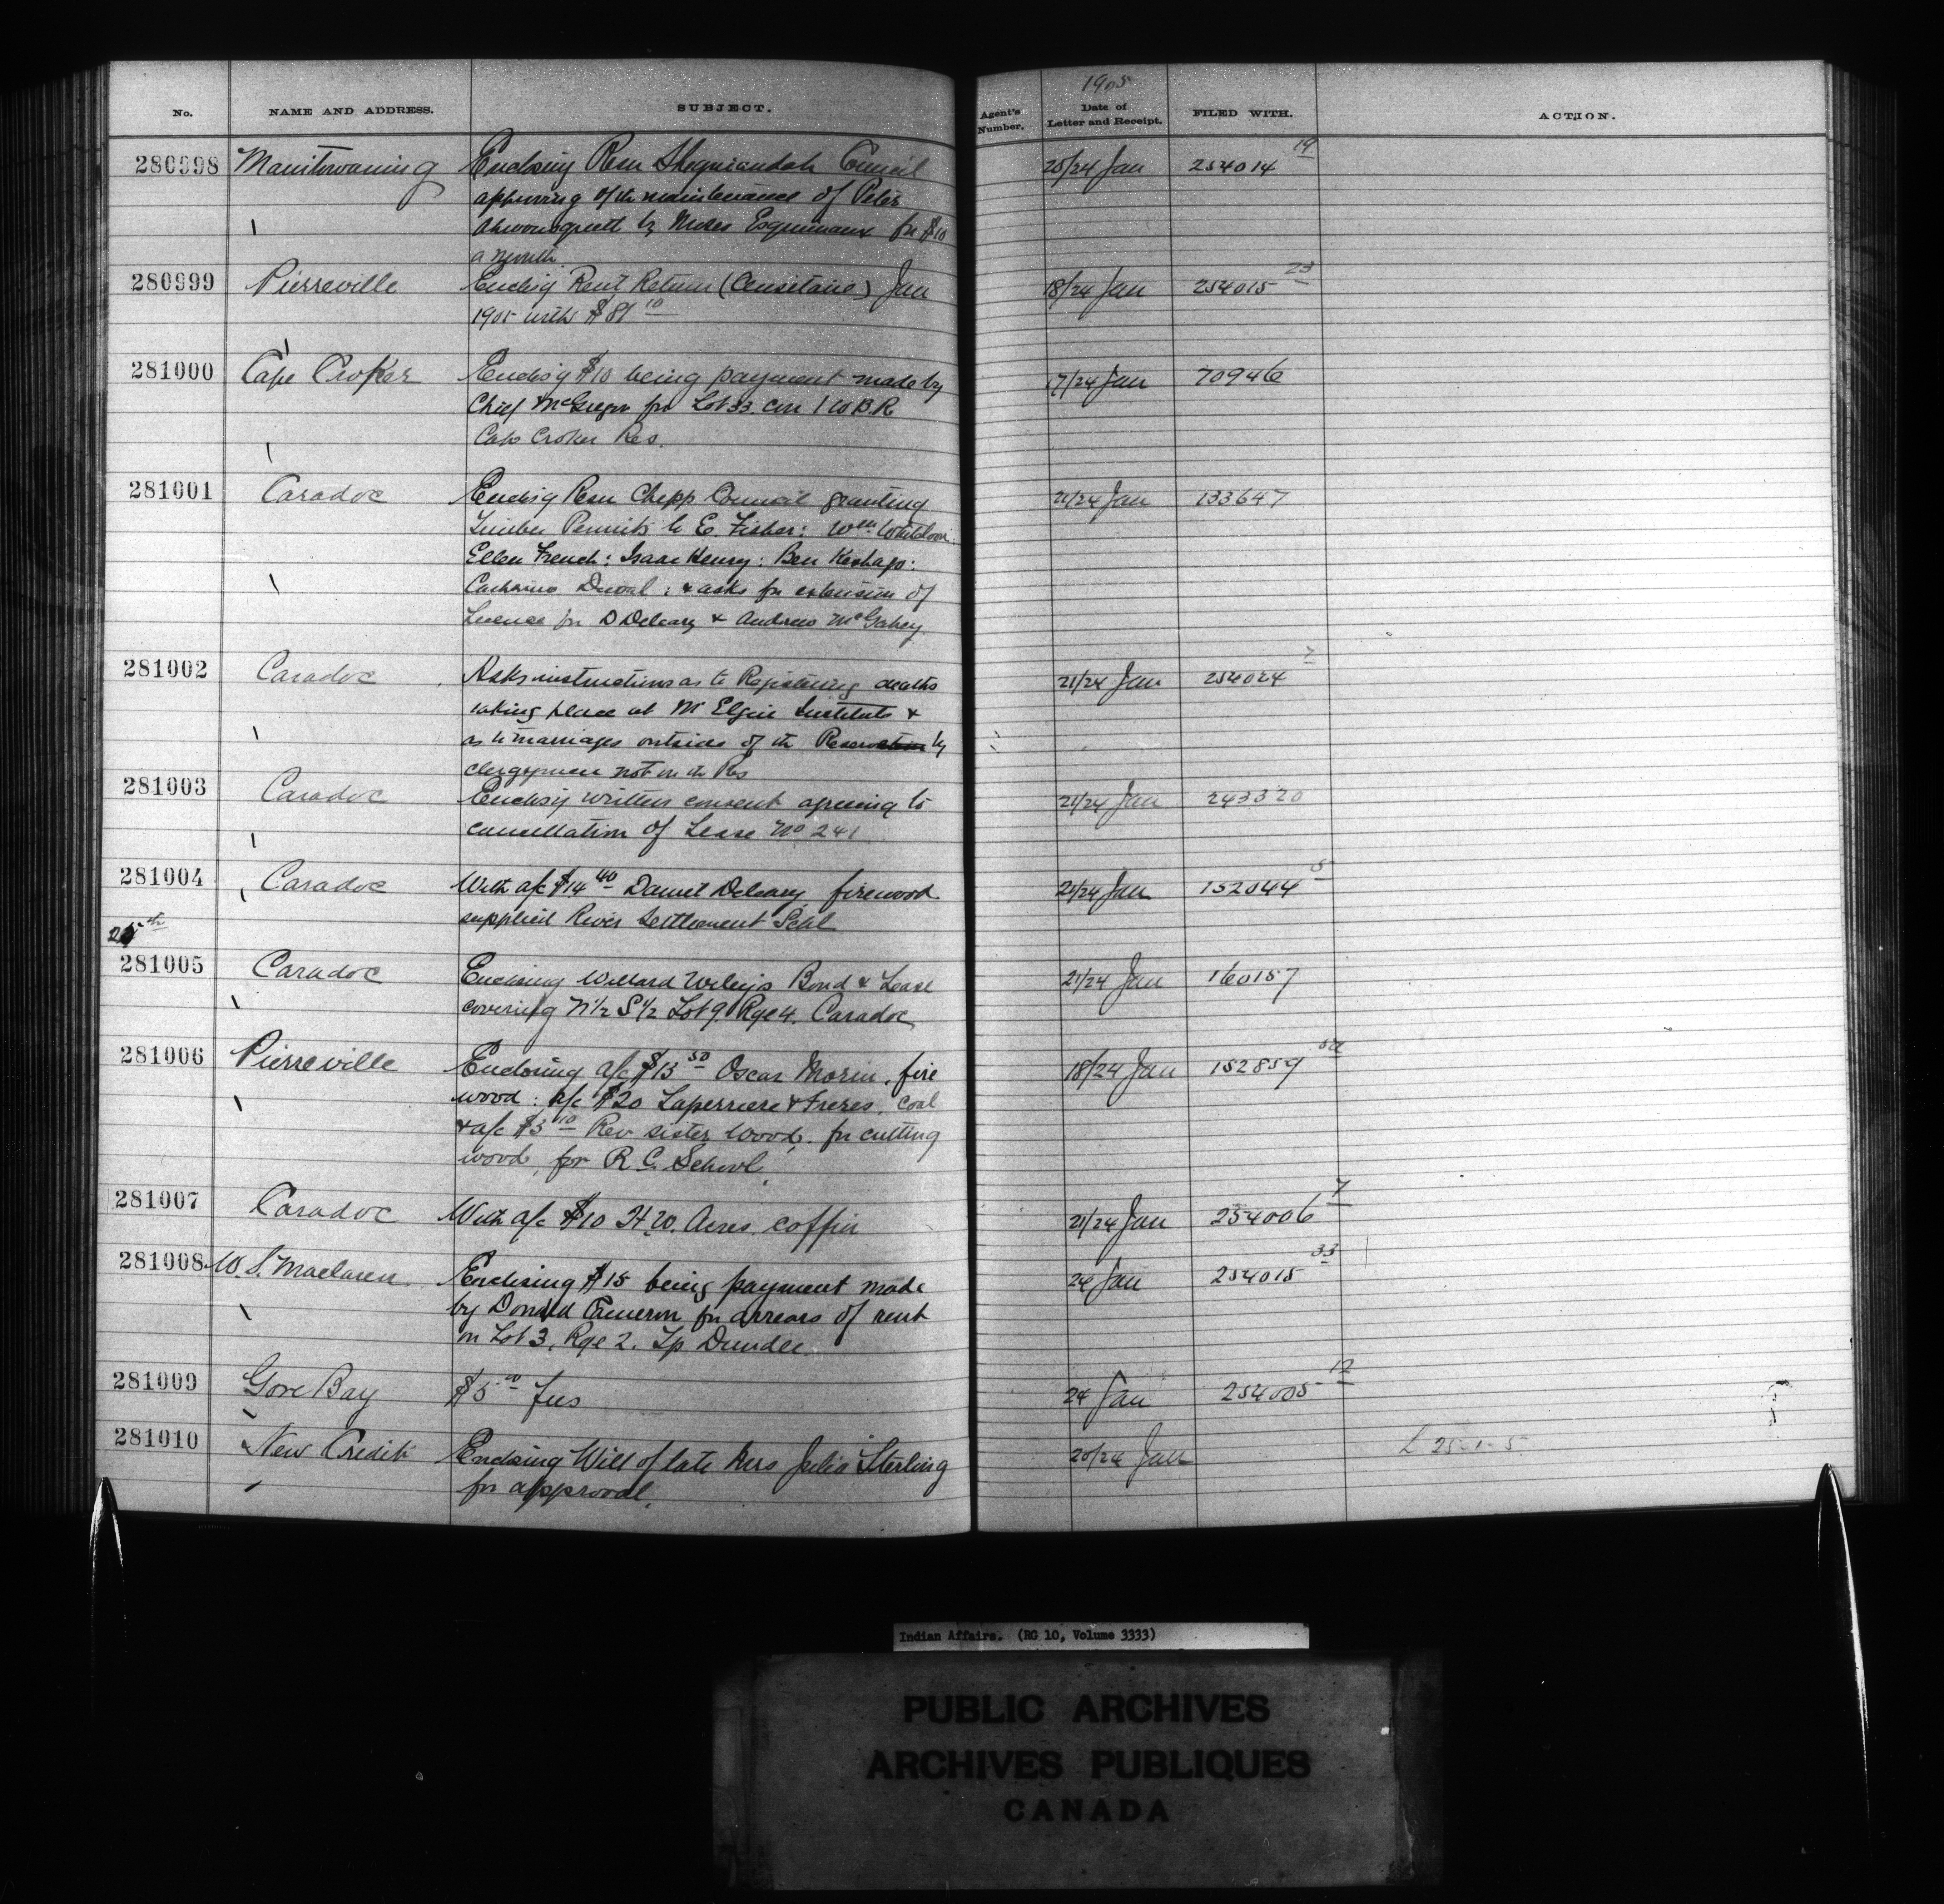 1905
No. NAME AND ADDRESS. SUBJECT. Agent's Number. Date of Letter and Receipt. FILED WITH. ACTION.
280998 Manitowaning Enclosing Resn Sheguiandah Council 20/24 Jan 254014 19
approving of the maintenance of Peter
by Moses Esquimaux for $10
a month
280999 Pierreville Enclosg Rent Return (Censitaire) Jan 18/24 Jan 254015 23
1905 with $81 10
281000 Cape Croker Enclosg $10 being payment made by 17/24 Jan 70946
Chief McGregor for Lot 33 con 1 W B.R.
Cape Croker Res.
281001 Caradoc Enclosg Resn Chepp Council granting 21/24 Jan 133647
Timber Permits to E. Fisher: Wm
Ellen French: Isaac Henry: Ben Keshapo:
Catharine Duval: & asks for extension of
License for D Deleary & Andrew McGahey
281002 Caradoc Asks instructions as to Registering deaths 21/24 Jan 254024 7
taking place at Mt Elgin Institute &
as to marriages outside of the Reservation by
clergymen not on the Res
281003 Caradoc Enclosg written consent agreeing to 21/24 Jan 243320
cancellation of Lease No 241
281004 Caradoc With a/c $14 40 Daniel Deleary, firewood 21/24 Jan 152044 5
supplied River Settlement Schl
25th
281005 Caradoc Enclosing Willard Bond & Lease 21/24 Jan 160157
covering N½ S½ Lot 9. Rge 4. Caradoc
281006 Pierreville Enclosing a/c $13 50 Oscar Morin, fire 18/24 Jan 152859
wood: a/c $20 Laperriere & Freres, coal
& a/c $3 10 Rev sister Wood, for cutting
wood, for R C. School.
281007 Caradoc With a/c $10 H.W. Acres, coffin 21/24 Jan 254006 7
281008 W. S. Maclaren Enclosing $15 being payment made 24 Jan 254015 33
by Donald Cameron for arrears of rent
on Lot 3, Rge 2. Tp Dundee.
281009 Gore Bay $5 fees 24 Jan 254005 12
281010 New Credit Enclosing Will of late Mrs Julia Sterling 20/24 Jan L 25-1-5
for approval.
Indian Affairs. (RG 10, Volume 3333)
PUBLIC ARCHIVES
ARCHIVES PUBLIQUES
CANADA